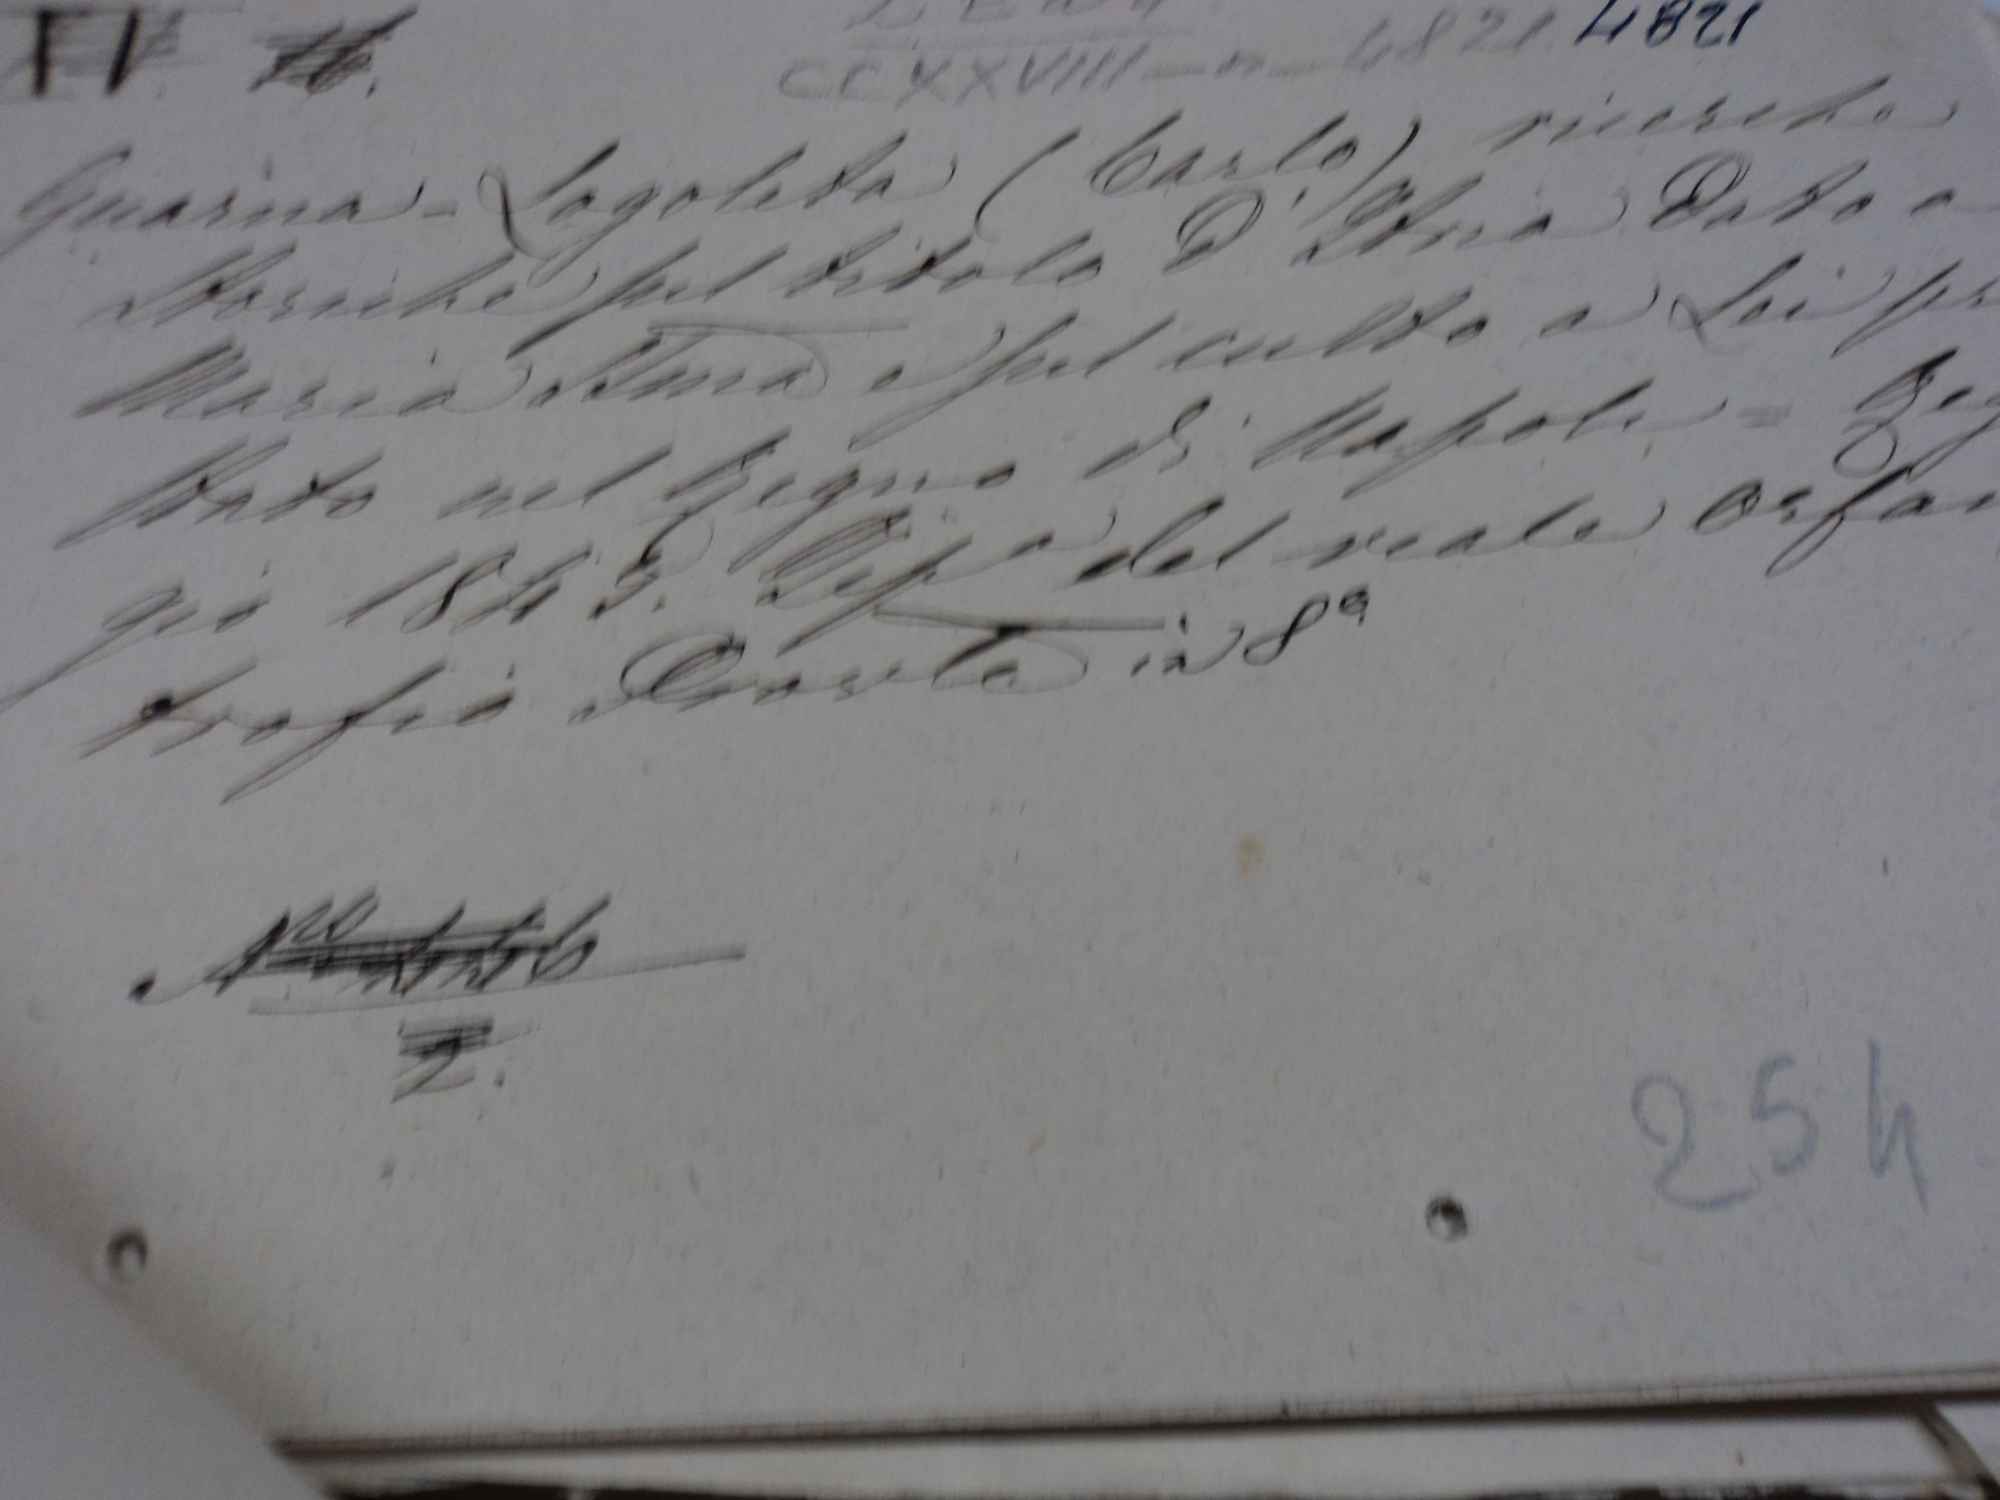 CCXXVIII — n — 4821 4821
Guarna - Logoteta (Carlo) ricerche
Storiche sul titolo D'Alma Dato a
Maria SSma e sul culto a Lei pre
stato nel Regno di Napoli = Reg
gio 1845. Tip.a del reale Orfan
trofio in 8°
2.
254